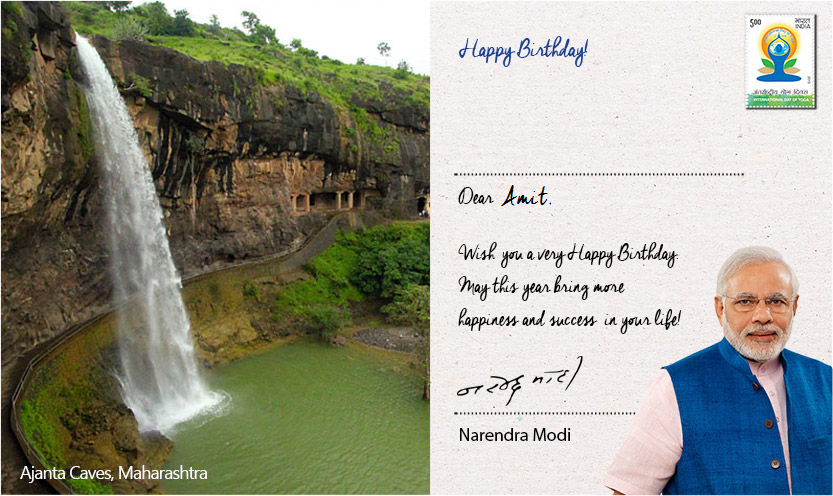 Happy Birthday!
5.00
भारत
INDIA
अंतर्राष्ट्रीय योग दिवस
INTERNATIONAL DAY OF YOGA
Dear Amit.
Wish you a very Happy Birthday.
May this year bring more
happiness and success in your life!
नरेन्द्र मोदी
Narendra Modi
Ajanta Caves, Maharashtra